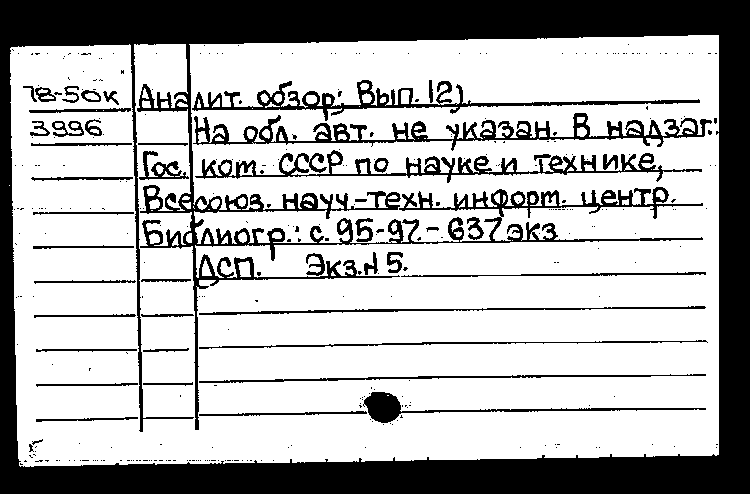 78-50к Аналит. обзор; Вып. 12).
3996 На обл. авт. не указан. В надзаг.:
Гос. ком. СССР по науке и технике,
Всесоюз. науч.-техн. информ. центр.
Библиогр.: с. 95-97. - 637 экз
ДСП. Экз.№ 5.